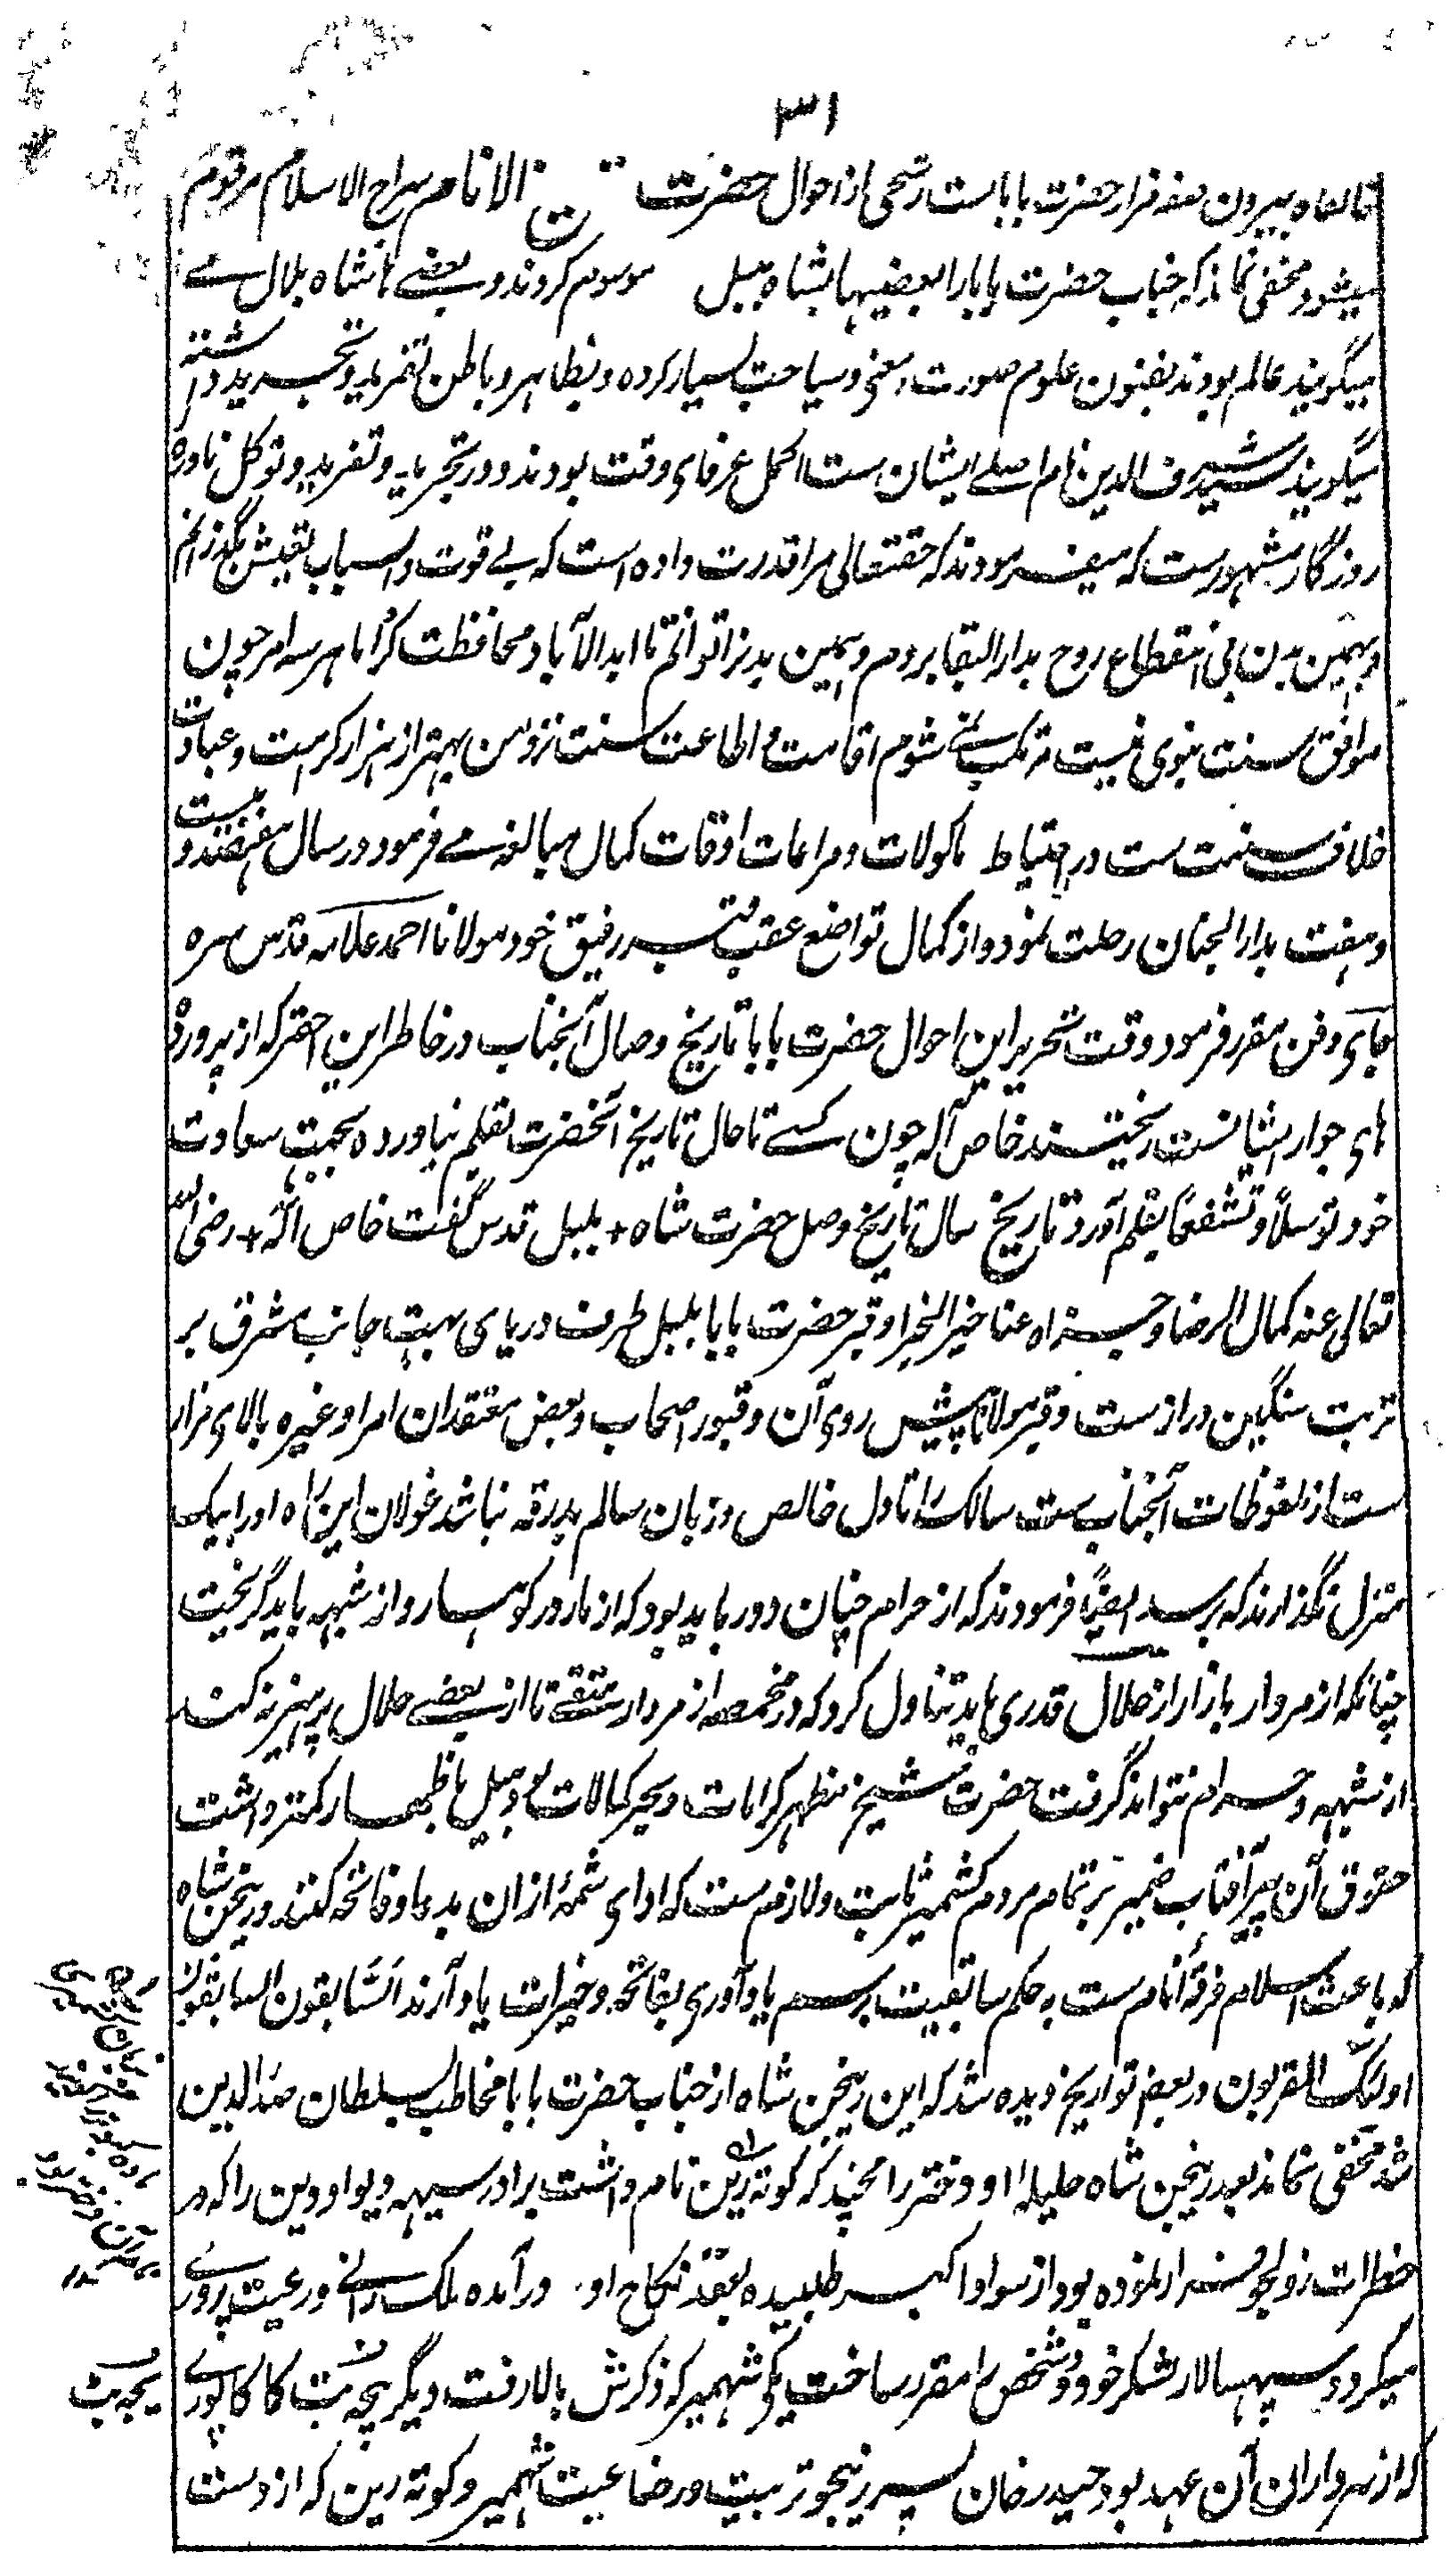 ۳۱
خانقاه بیرون صفه مزار حضرت باباست رشحی از احوال حضرت الانام سراج الاسلام مرقوم
میشود مخفی نماند که جناب حضرت بابا را بعضیها بشاه بلبل موسوم کردند و بعضے شاه بلال مے
میگویند عالم بودند بفنون علوم صورت و معنی و سیاحت بسیار کرده و بظاهر و باطن تفرید و تجرید داشته
میگویند شرف الدین نام اصلے ایشان ست اکمل عرفای وقت بودند و در تجرید و تفرید و توکل نادره
روزگار مشهورست که میفرمودند که حقتعالی مرا قدرت داده است که بے قوت و اسباب تعیش بگذرانم
و بهمین بدن بی انقطاع روح بدار البقا بروم و همین بدن را توانم تا ابد الآباد محافظت کرد اما هر سه امر چون
موافق سنت نبوی نیست مرتکب نمے شوم اقامت و اطاعت سنت نزد من بهتر از هزار کرامت و عبادت
خلاف سنت ست در احتیاط ماکولات و مراعات اوقات کمال مبالغه مے فرمود در سال هفتصد و بیست
و هفت بدار الجنان رحلت نمود و از کمال تواضع عقب قبر رفیق خود مولانا احمد علامه قدس سره
جای دفن مقرر فرمود وقت تحریر این احوال حضرت بابا تاریخ وصال آنجناب در خاطر این احقر که از پرورده
های جوار ایشانست ریختند خاص اله چون کسے تا حال تاریخ آنحضرت بقلم نیاورده بجهت سعادت
خود توسلاً و تشفعاً بقلم آورد تاریخ سال تاریخ وصل حضرت شاه + بلبل قدس گفت خاص اله + رضی الله
تعالی عنه کمال الرضا و جزاه عنا خیر الجزا و قبر حضرت بابا بلبل طرف دریای بهت جانب مشرق بر
تربت سنگین دراز ست و قبر مولانا پیش روی آن و قبور اصحاب و بعض معتقدان امرا و غیره بالای مزار
ست از ملفوظات آنجناب ست سالک را تا دل خالص و زبان سالم بدرقه نباشد غولان این راه او را بیک
منزل نگذارند که برسد ایضاً فرمودند که از حرام چنان دور باید بود که از مار در کوهسار و از شبهه باید گریخت
چنانکه از مردار بازار از حلال قدری باید تناول کرد که در مخمصه از مردار متقے تا از بعضے حلال پرهیز نه کند
از شبهه و حرام نتواند گرفت حضرت شیخ مظهر کرامات و بحر کمالات بود میل باظهار کمتر داشت
حقوق آن پیر آفتاب ضمیر بر تمام مردم کشمیر ثابت و لازم ست که ادای شمهٔ ازان بدعا و فاتحه کنند و رینچن شاه
که باعث اسلام فرقهٔ انام ست به حکم سابقیت برسم یاد آوری بفاتحه و خیرات یاد آرند السّابقون السابقون
اولئک المقربون در بعض تواریخ دیده شد که این رینچن شاه از جناب حضرت بابا مخاطب بسلطان صدر الدین
شد مخفی نماند بعد رینچن شاه حلیلهٔ او دختر رامچند که کوته رین نام داشت برادر سیهه دیو اودین را که در
خطرات زولچو فرار نموده بود از سواد اکبر طلبیده بعقد نکاح او در آمده ملک رانے و رعیت پرورے
میکرد و سپهسالار لشکر خود دو شخص را مقرر ساخت یکی شهمیر که ذکرش بالا رفت دیگر بچه بت کاکاپورے
که از سرداران آن عهد بود حیدر خان پسر رینچو تربیت و رضاعیت شهمیر و کوته رین که از دست
یچه بٹ